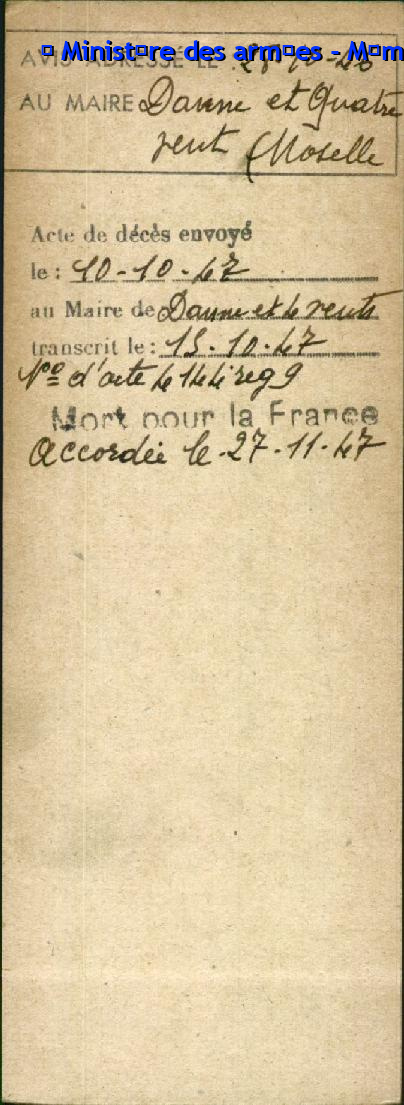 Ministère des armées - Mém
AVIS ADRESSÉ LE
AU MAIRE Danne et Quatre
vent (Moselle
Acte de décès envoyé
le : 10-10-47
au Maire de Danne et 4 vents
transcrit le : 15.10.47
Nº d'acte reg 9
Mort pour la France
Accordée le 27-11-47